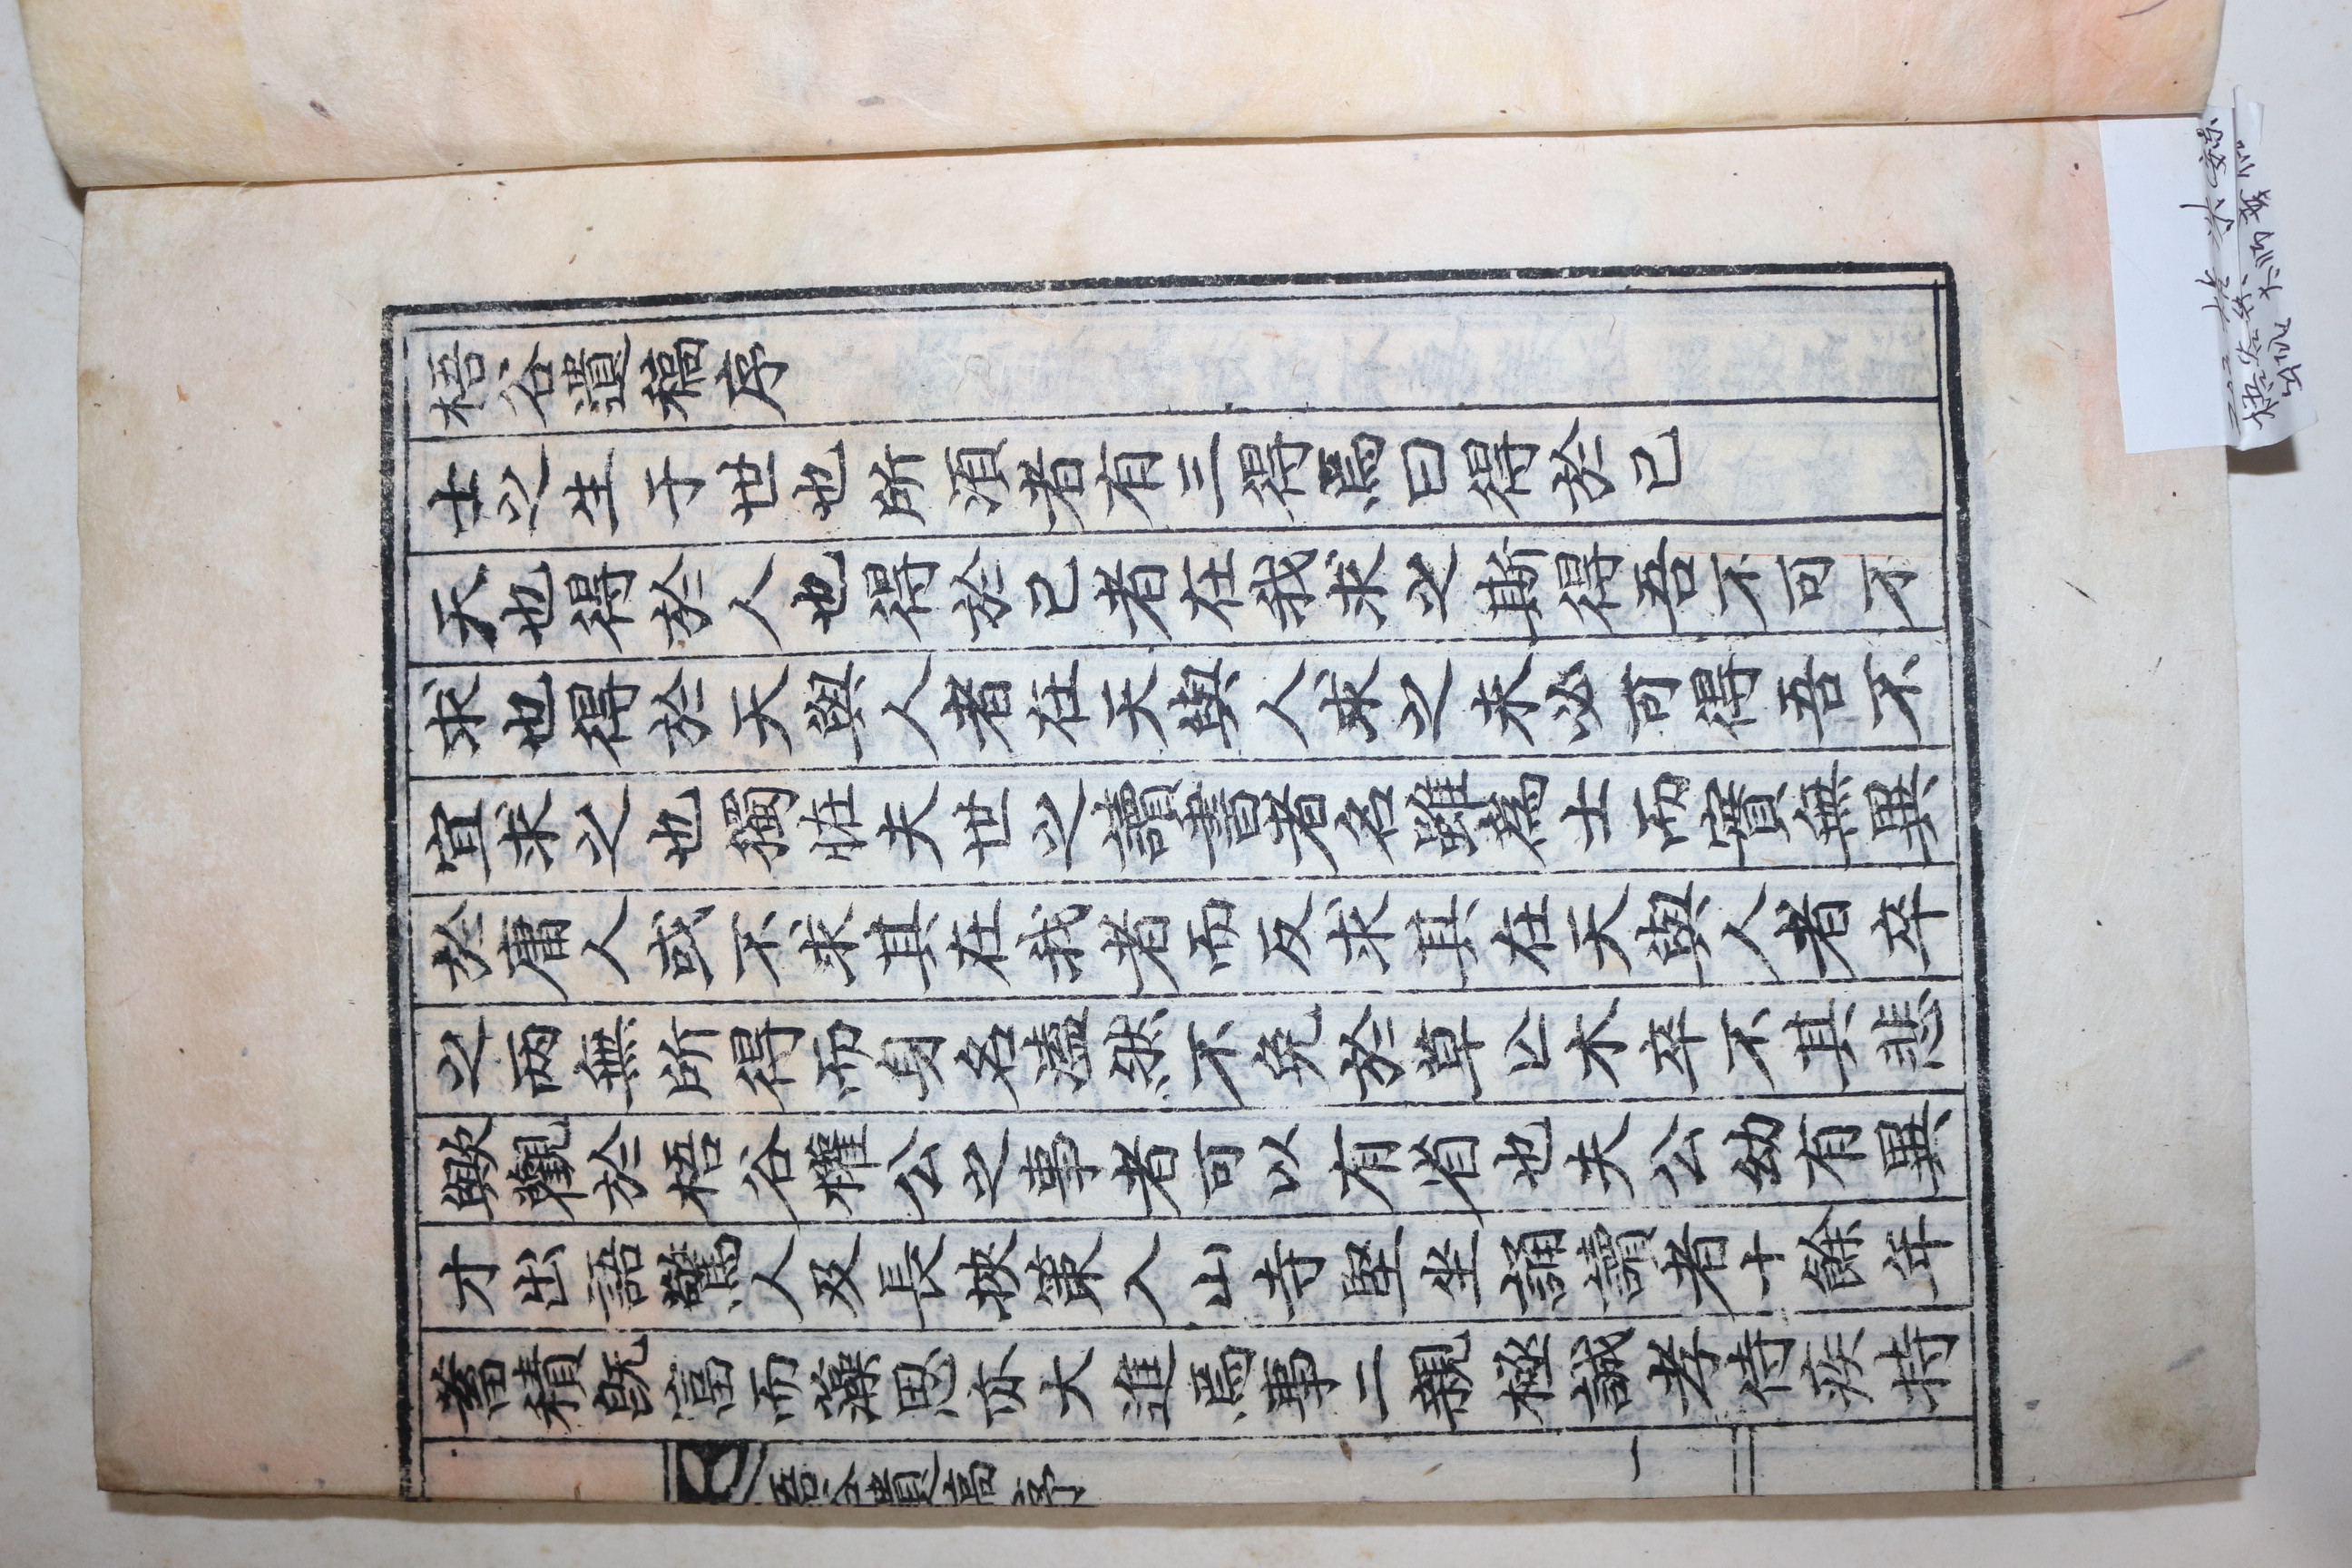 梧谷遺稿序
士之生于世也所湏者有三得焉曰得於己
天也得於人也得於己者在我求之斯得吾不可不
求也得於天與人者在天與人求之未必可得吾不
宜求之也獨恠夫世之讀書者名雖爲士而實無異
於庸人或不求其在我者而反求其在天與人者卒
之兩無所得而身名溘然不免於草亾木卒不其悲
歟觀於梧谷權公之事者可以有省也夫公幼有異
才出語驚人及長挾策入山寺堅坐誦讀者十餘年
蓄積旣富而藻思亦大進焉事二親極誠孝侍疾持
梧谷遺稿序
一
梧谷集